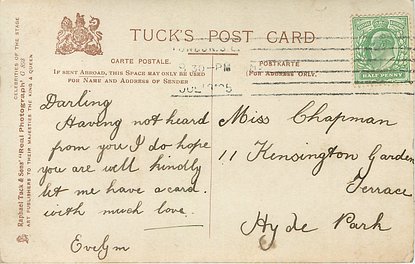 TUCK'S POST CARD
CARTE POSTALE.
POSTKARTE
IF SENT ABROAD, THIS SPACE MAY ONLY BE USED
FOR NAME AND ADDRESS OF SENDER
(FOR ADDRESS ONLY.)
LONDON. S.E.
30-PM
HALF PENNY
Raphael Tuck & Sons' "Real Photograph"
CELEBRITIES OF THE STAGE
ART PUBLISHERS TO THEIR MAJESTIES THE KING & QUEEN
Darling
Having not heard
from you I do hope
you are well kindly
let me have a card.
with much love.
Evelyn
Miss Chapman
11 Kensington Garden
Terrace
Hyde Park